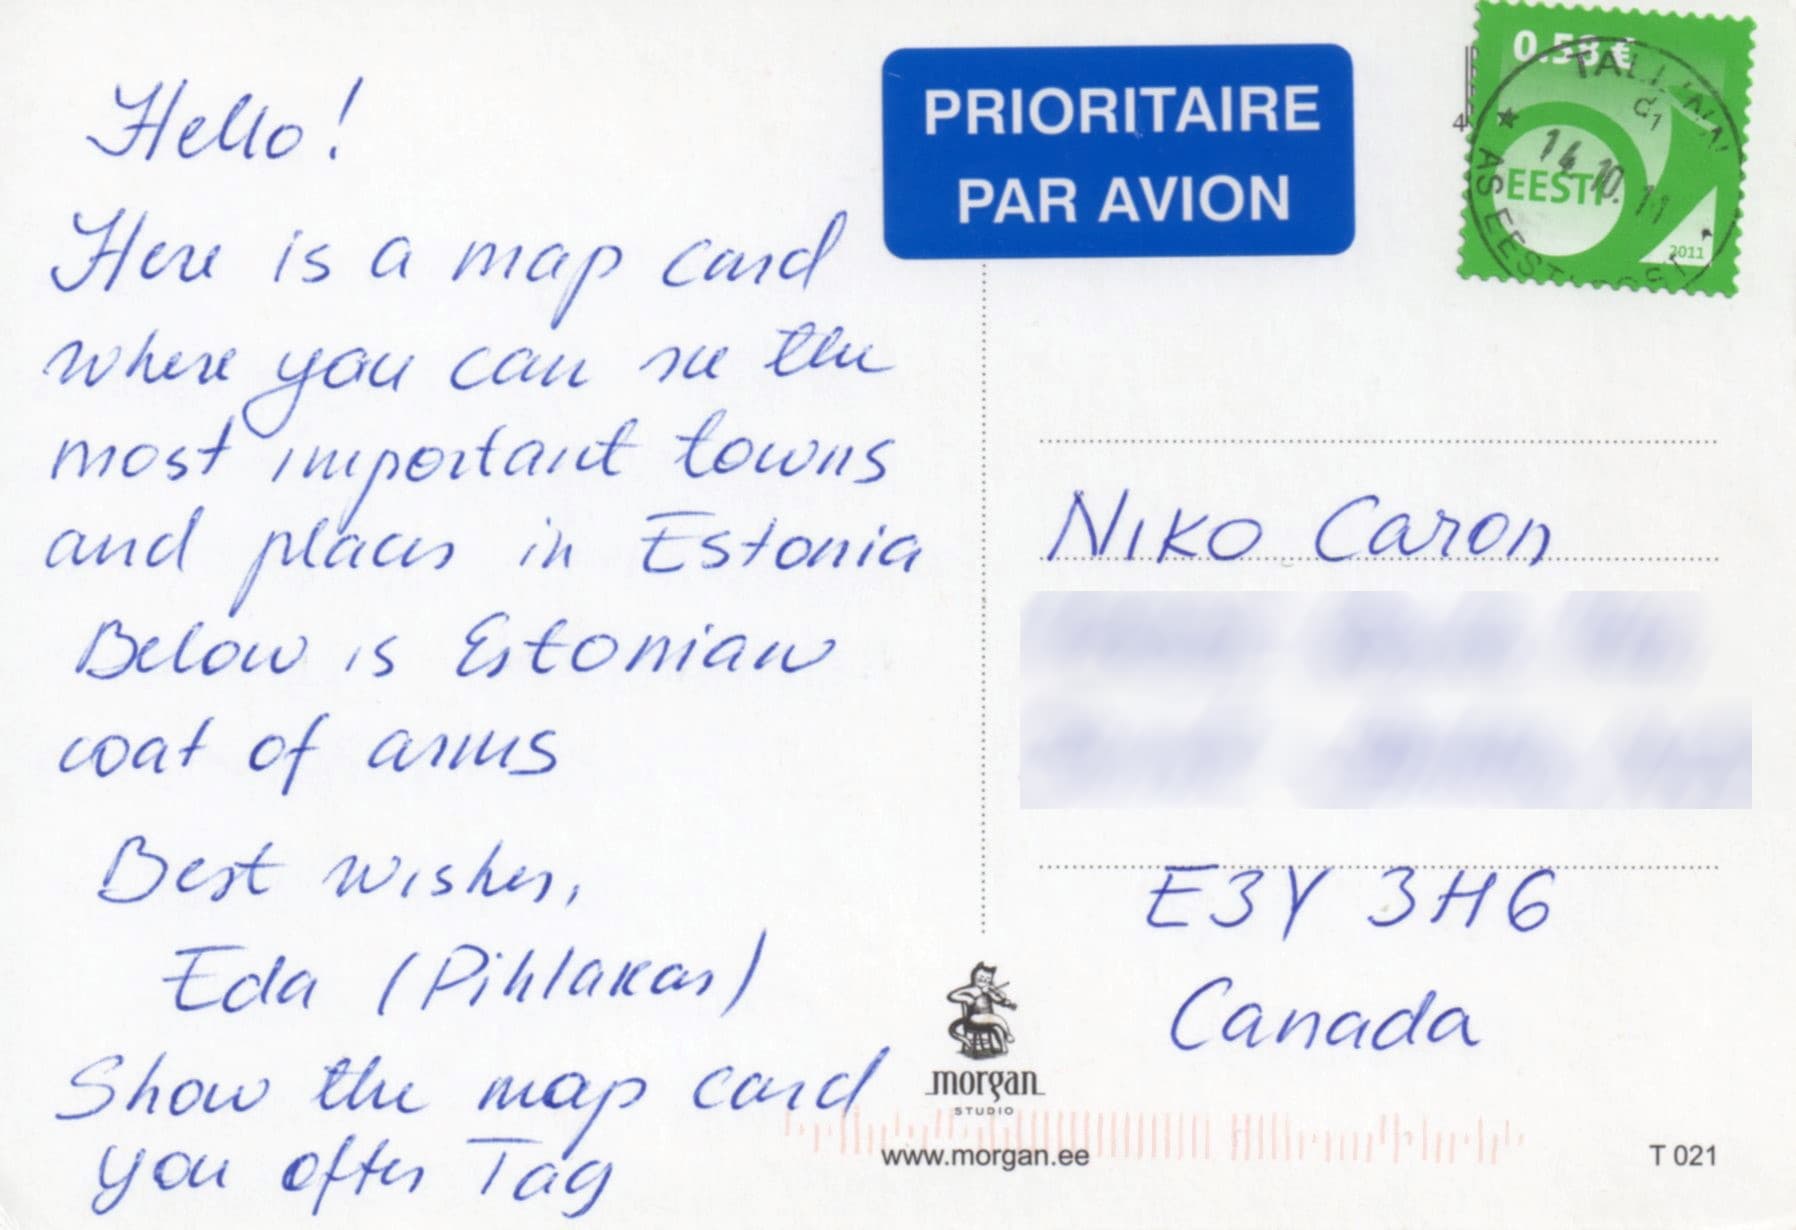 Hello!
Here is a map card
where you can see the
most important towns
and places in Estonia
Below is Estonian
coat of arms
Best wishes,
Eda (Pihlakas)
Show the map card
you ofter Tag
PRIORITAIRE
PAR AVION
0.58 €
TALLINN
14.10.11
EESTI
AS EESTI POST
2011
Niko Caron
E3Y 3H6
Canada
morgan
STUDIO
www.morgan.ee
T 021